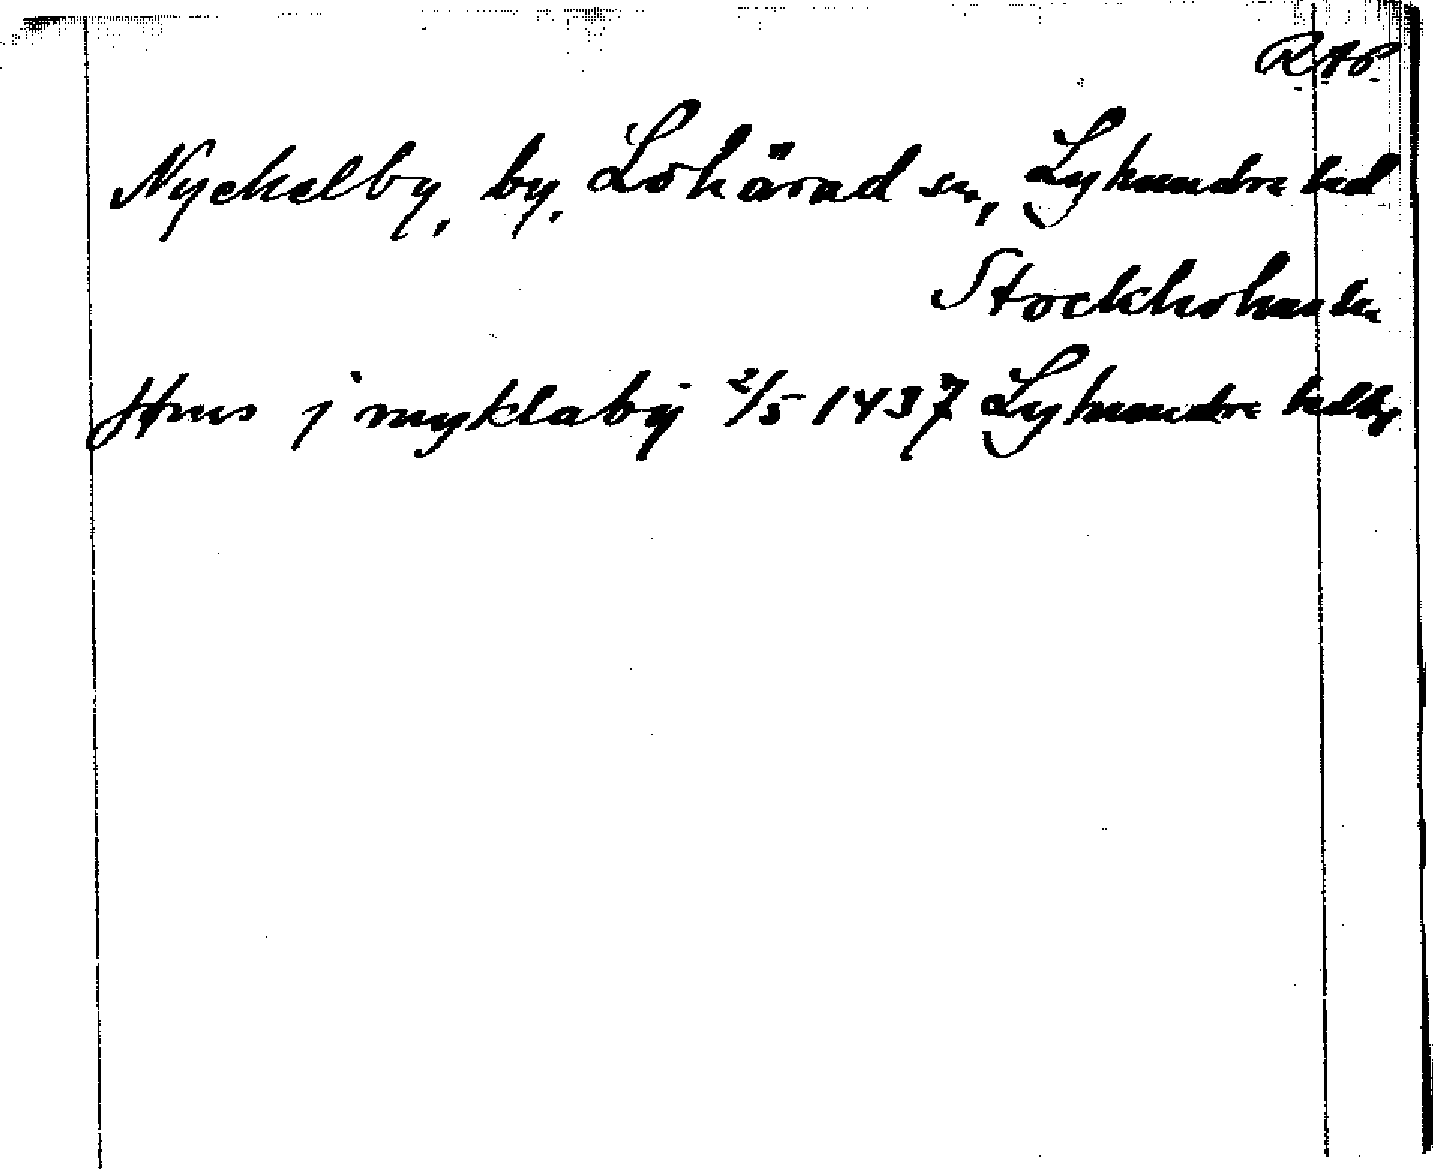 RAP
Nyckelby, by, Lohärad sn, Lyhundra hd
Stockholms ln
Hws j myklaby 2/5 1437 Lyhundra hd